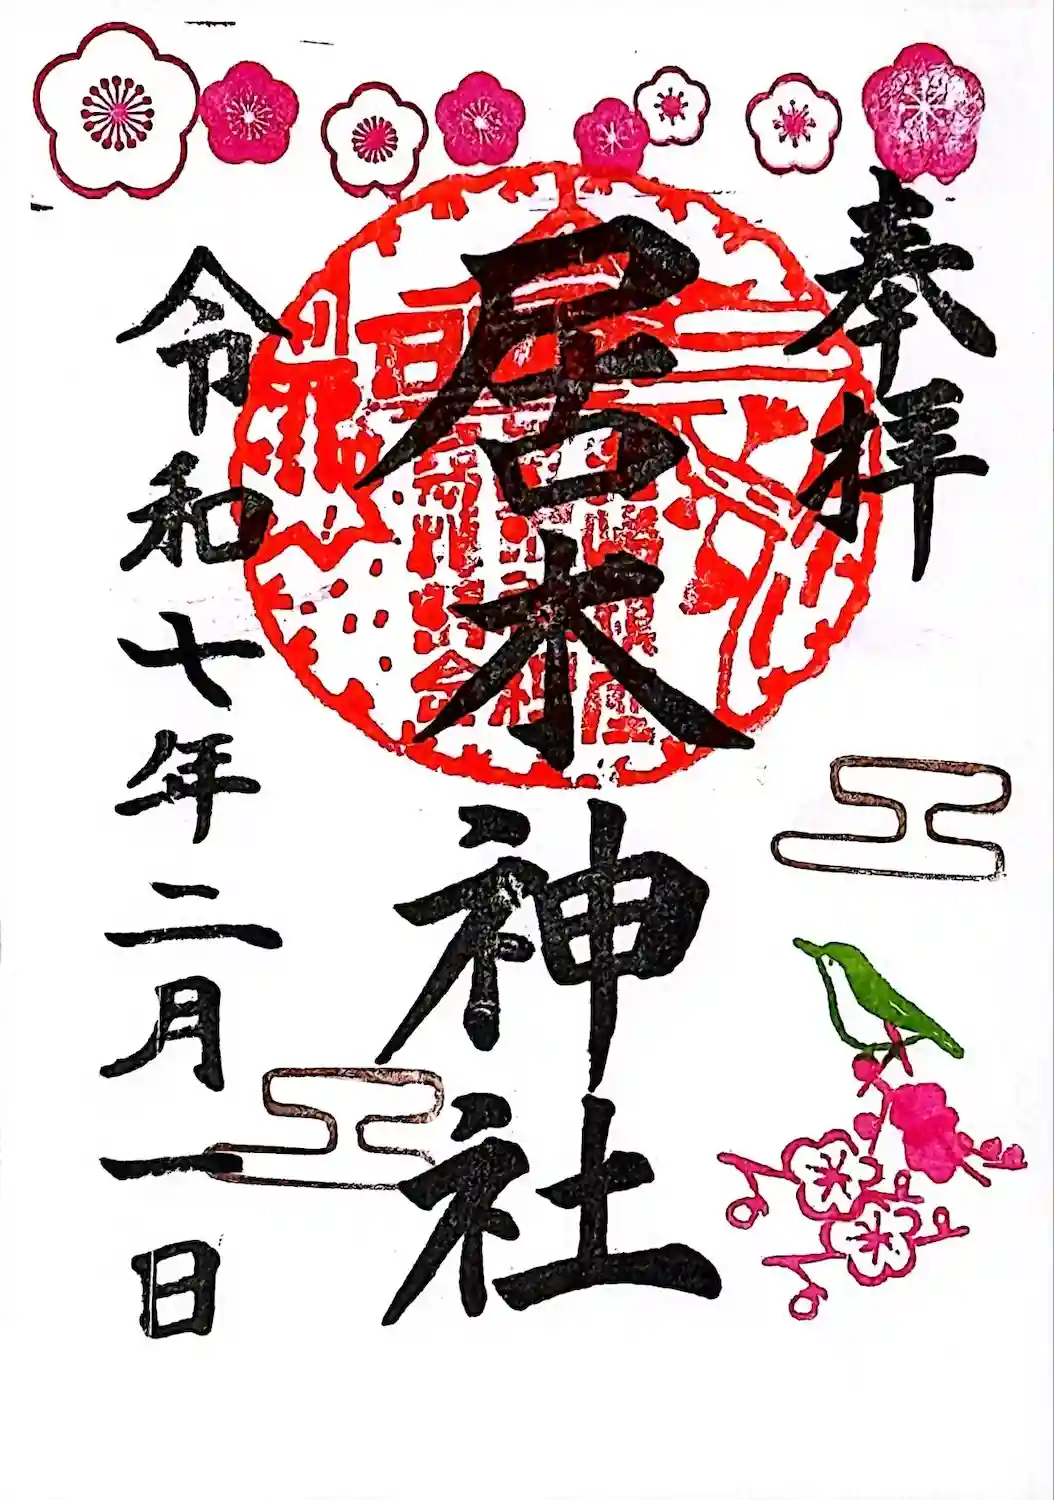 奉拝
居木神社
令和七年二月一日